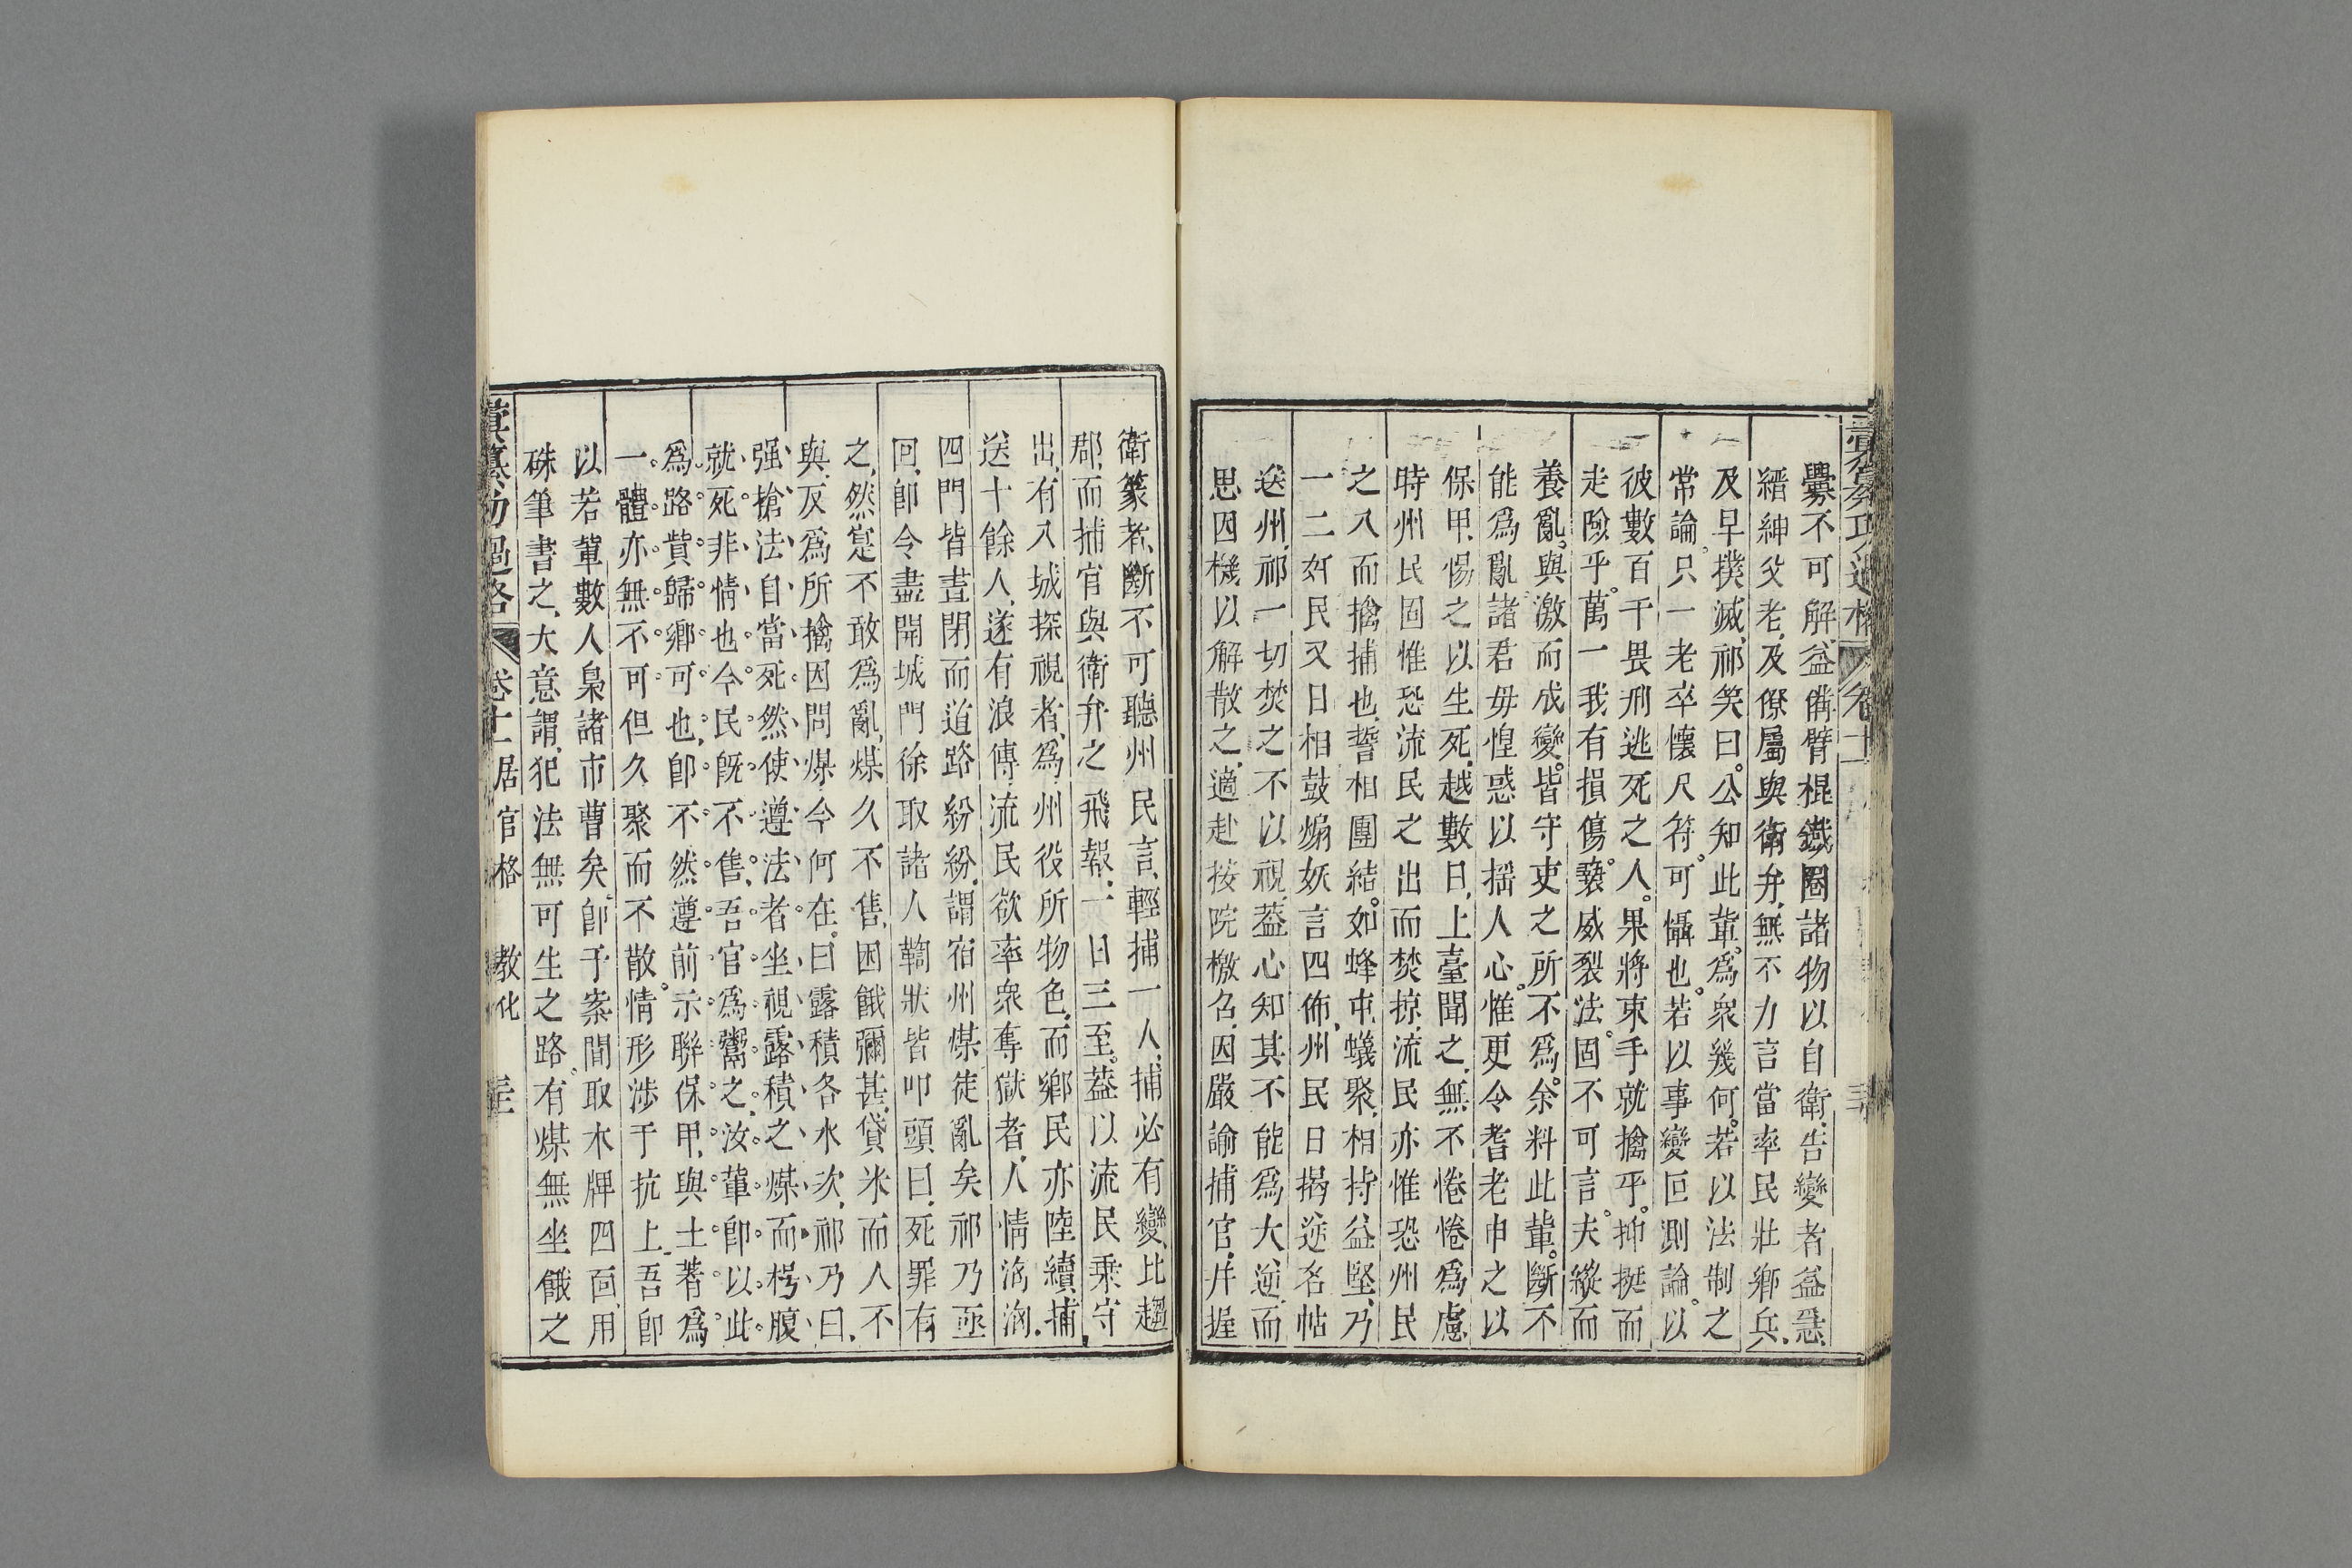 彙纂功過格 卷十一
釁不可解益備臂棍鐵圈諸物以自衛告變者益急
縉紳父老及僚屬與衛弁無不力言當率民壯鄉兵
及早撲滅祁笑曰公知此輩為衆幾何若以法制之
常論只一老卒懷尺符可懾也若以事變叵測論以
彼數百千畏刑逃死之人果將束手就擒乎抑挺而
走險乎萬一我有損傷褻威裂法固不可言夫縱而
養亂與激而成變皆守吏之所不為余料此輩斷不
能為亂諸君毋惶惑以揺人心惟更令耆老申之以
保甲惕之以生死越數日上臺聞之無不惓惓為慮
時州民固惟恐流民之出而焚掠流民亦惟恐州民
之入而擒捕也誓相團結如蜂屯蟻聚相持益堅乃
一二奸民又日相鼓煽妖言四佈州民日揭逆名帖
送州祁一切焚之不以視葢心知其不能為大逆而
思因機以解散之適赴按院檄召因嚴諭捕官并握
衛篆者斷不可聽州民言輕捕一人捕必有變比趨
郡而捕官與衛弁之飛報一日三至葢以流民乗守
出有入城探視者為州役所物色而鄉民亦陸續捕
送十餘人遂有浪傳流民欲率衆奪獄者人情洶洶
四門皆晝閉而道路紛紛謂宿州煤徒亂矣祁乃亟
回卽令盡開城門徐取諸人鞫狀皆叩頭曰死罪有
之然寔不敢為亂煤久不售困餓彌甚貸米而人不
與反為所擒因問煤今何在曰露積各水次祁乃曰
强搶法自當死然使遵法者坐視露積之煤而枵腹
就死非情也今民旣不售吾官為鬻之汝輩卽以此
為路貲歸鄉可也卽不然遵前示聯保甲與土著為
一體亦無不可但久聚而不散情形涉于抗上吾卽
以若輩數人梟諸市曹矣卽于案間取木牌四面用
硃筆書之大意謂犯法無可生之路有煤無坐餓之
彙纂功過格 卷十一居官格 教化